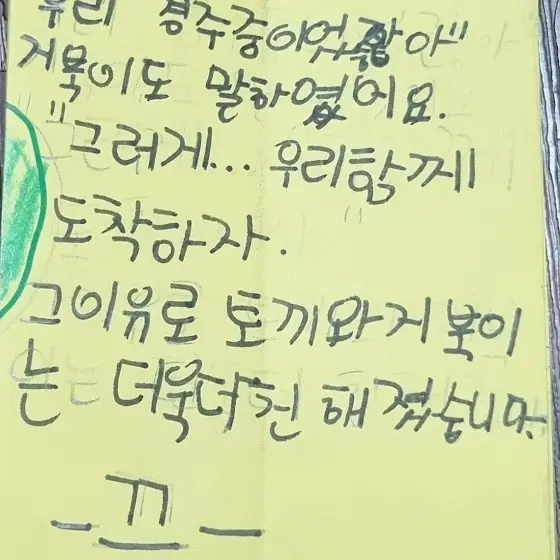 우리 경주중이였잖아"
거북이도 말하였어요.
"그러게... 우리함께
도착하자."
그이유로 토끼와거북이
는 더욱더친 해졌습니다.
_끄_